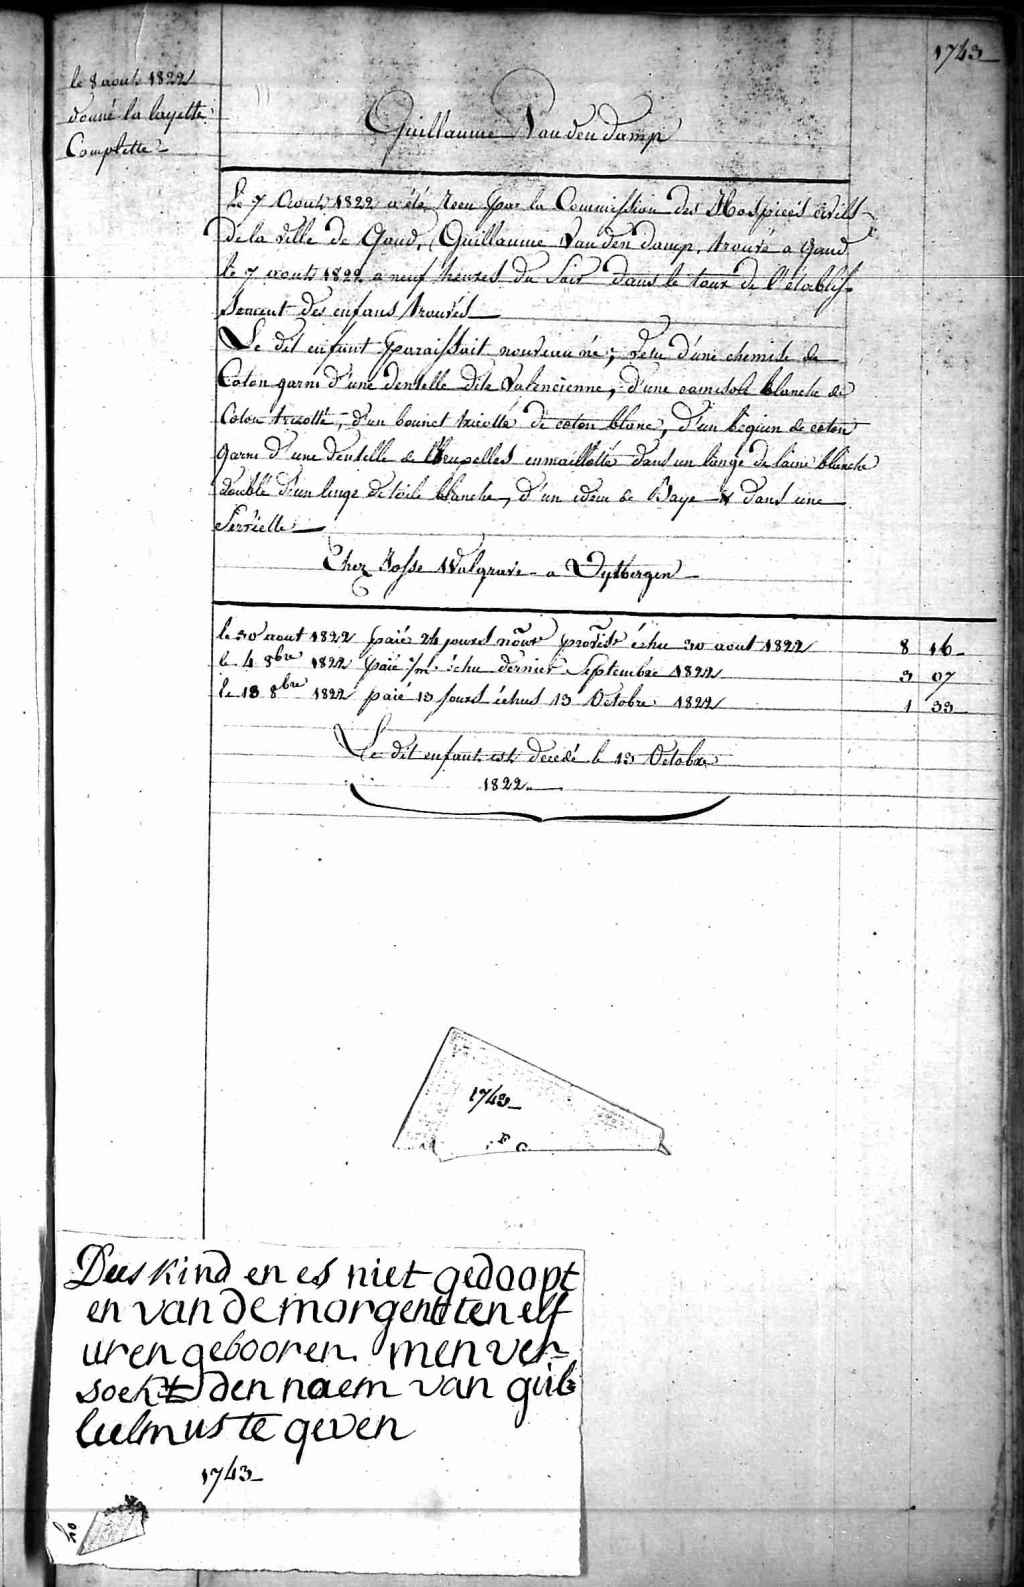 1743
le 8 aout 1822
donné la layette
Complette
Guillaume Van den damp
Le 7 Aout 1822 a été recu par la Commission des Hospices civils
de la ville de Gand, Guillaume Van den damp, trouvé a Gand
le 7 aout 1822 a neuf heures du soir dans le tour de l'établis-
sement des enfans trouvés
Le dit enfant paraissait nouveau né; vetu d'une chemise de
Coton garni d'une dentelle dite Valencienne, d'une camisole blanche de
Coton tricotté, d'un bonnet tricotté de coton blanc, d'un beguin de coton
garni d'une dentelle de Bruxelles enmaillotté dans un lange de laine blanche
doublé d'un linge de toile blanche, d'un idem de Baye & dans une
Serviette
Chez Josse Walgrave a Oytbergen
le 30 aout 1822 paié 24 jours nourre provisre échu 30 aout 1822 8 16
le 4 8bre 1822 paié 1/m échu dernier Septembre 1822 3 07
le 18 8bre 1822 paié 13 jours échus 13 Octobre 1822 1 33
Le dit enfant est decedé le 13 Octobre
1822
1743
F G
Dees kind en es niet gedoopt
en van de morgent ten elf
uren gebooren. men ver-
soekt den naem van guil-
lielmus te geven
1743